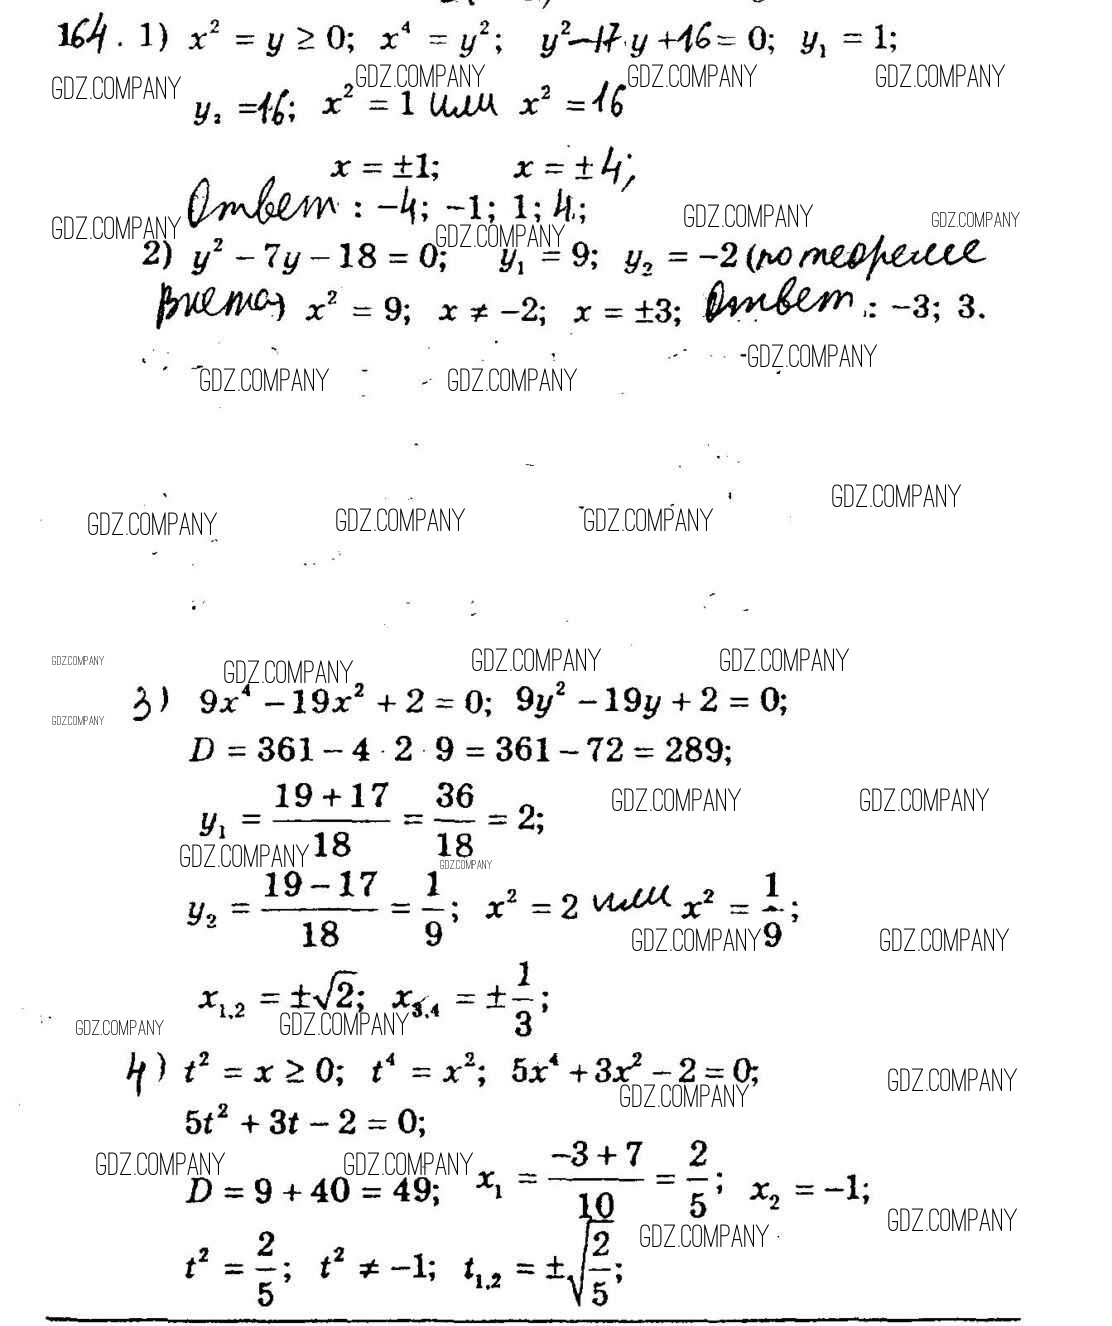 164. 1) x² = y ≥ 0; x⁴ = y²; y²–17·y+16 = 0; y₁ = 1;
GDZ.COMPANY GDZ.COMPANY GDZ.COMPANY GDZ.COMPANY
y₂ =16; x² = 1 или x² = 16
x = ±1; x = ±4;
Ответ: –4; –1; 1; 4;
GDZ.COMPANY GDZ.COMPANY GDZ.COMPANY GDZ.COMPANY
2) y² – 7y – 18 = 0; y₁ = 9; y₂ = –2 (по теореме
Виета) x² = 9; x ≠ –2; x = ±3; Ответ: –3; 3.
GDZ.COMPANY GDZ.COMPANY GDZ.COMPANY
GDZ.COMPANY GDZ.COMPANY GDZ.COMPANY GDZ.COMPANY
GDZ.COMPANY GDZ.COMPANY GDZ.COMPANY GDZ.COMPANY
3) 9x⁴ – 19x² + 2 = 0; 9y² – 19y + 2 = 0;
GDZ.COMPANY
D = 361 – 4 · 2 · 9 = 361 – 72 = 289;
y₁ = (19 + 17)/18 = 36/18 = 2;
GDZ.COMPANY GDZ.COMPANY
GDZ.COMPANY GDZ.COMPANY
y₂ = (19 – 17)/18 = 1/9; x² = 2 или x² = 1/9;
GDZ.COMPANY GDZ.COMPANY
x₁,₂ = ±√2; x₃,₄ = ±1/3;
GDZ.COMPANY GDZ.COMPANY
4) t² = x ≥ 0; t⁴ = x²; 5x⁴ + 3x² – 2 = 0;
GDZ.COMPANY GDZ.COMPANY
5t² + 3t – 2 = 0;
GDZ.COMPANY GDZ.COMPANY
D = 9 + 40 = 49; x₁ = (–3 + 7)/10 = 2/5; x₂ = –1;
GDZ.COMPANY GDZ.COMPANY
t² = 2/5; t² ≠ –1; t₁,₂ = ±√(2/5);